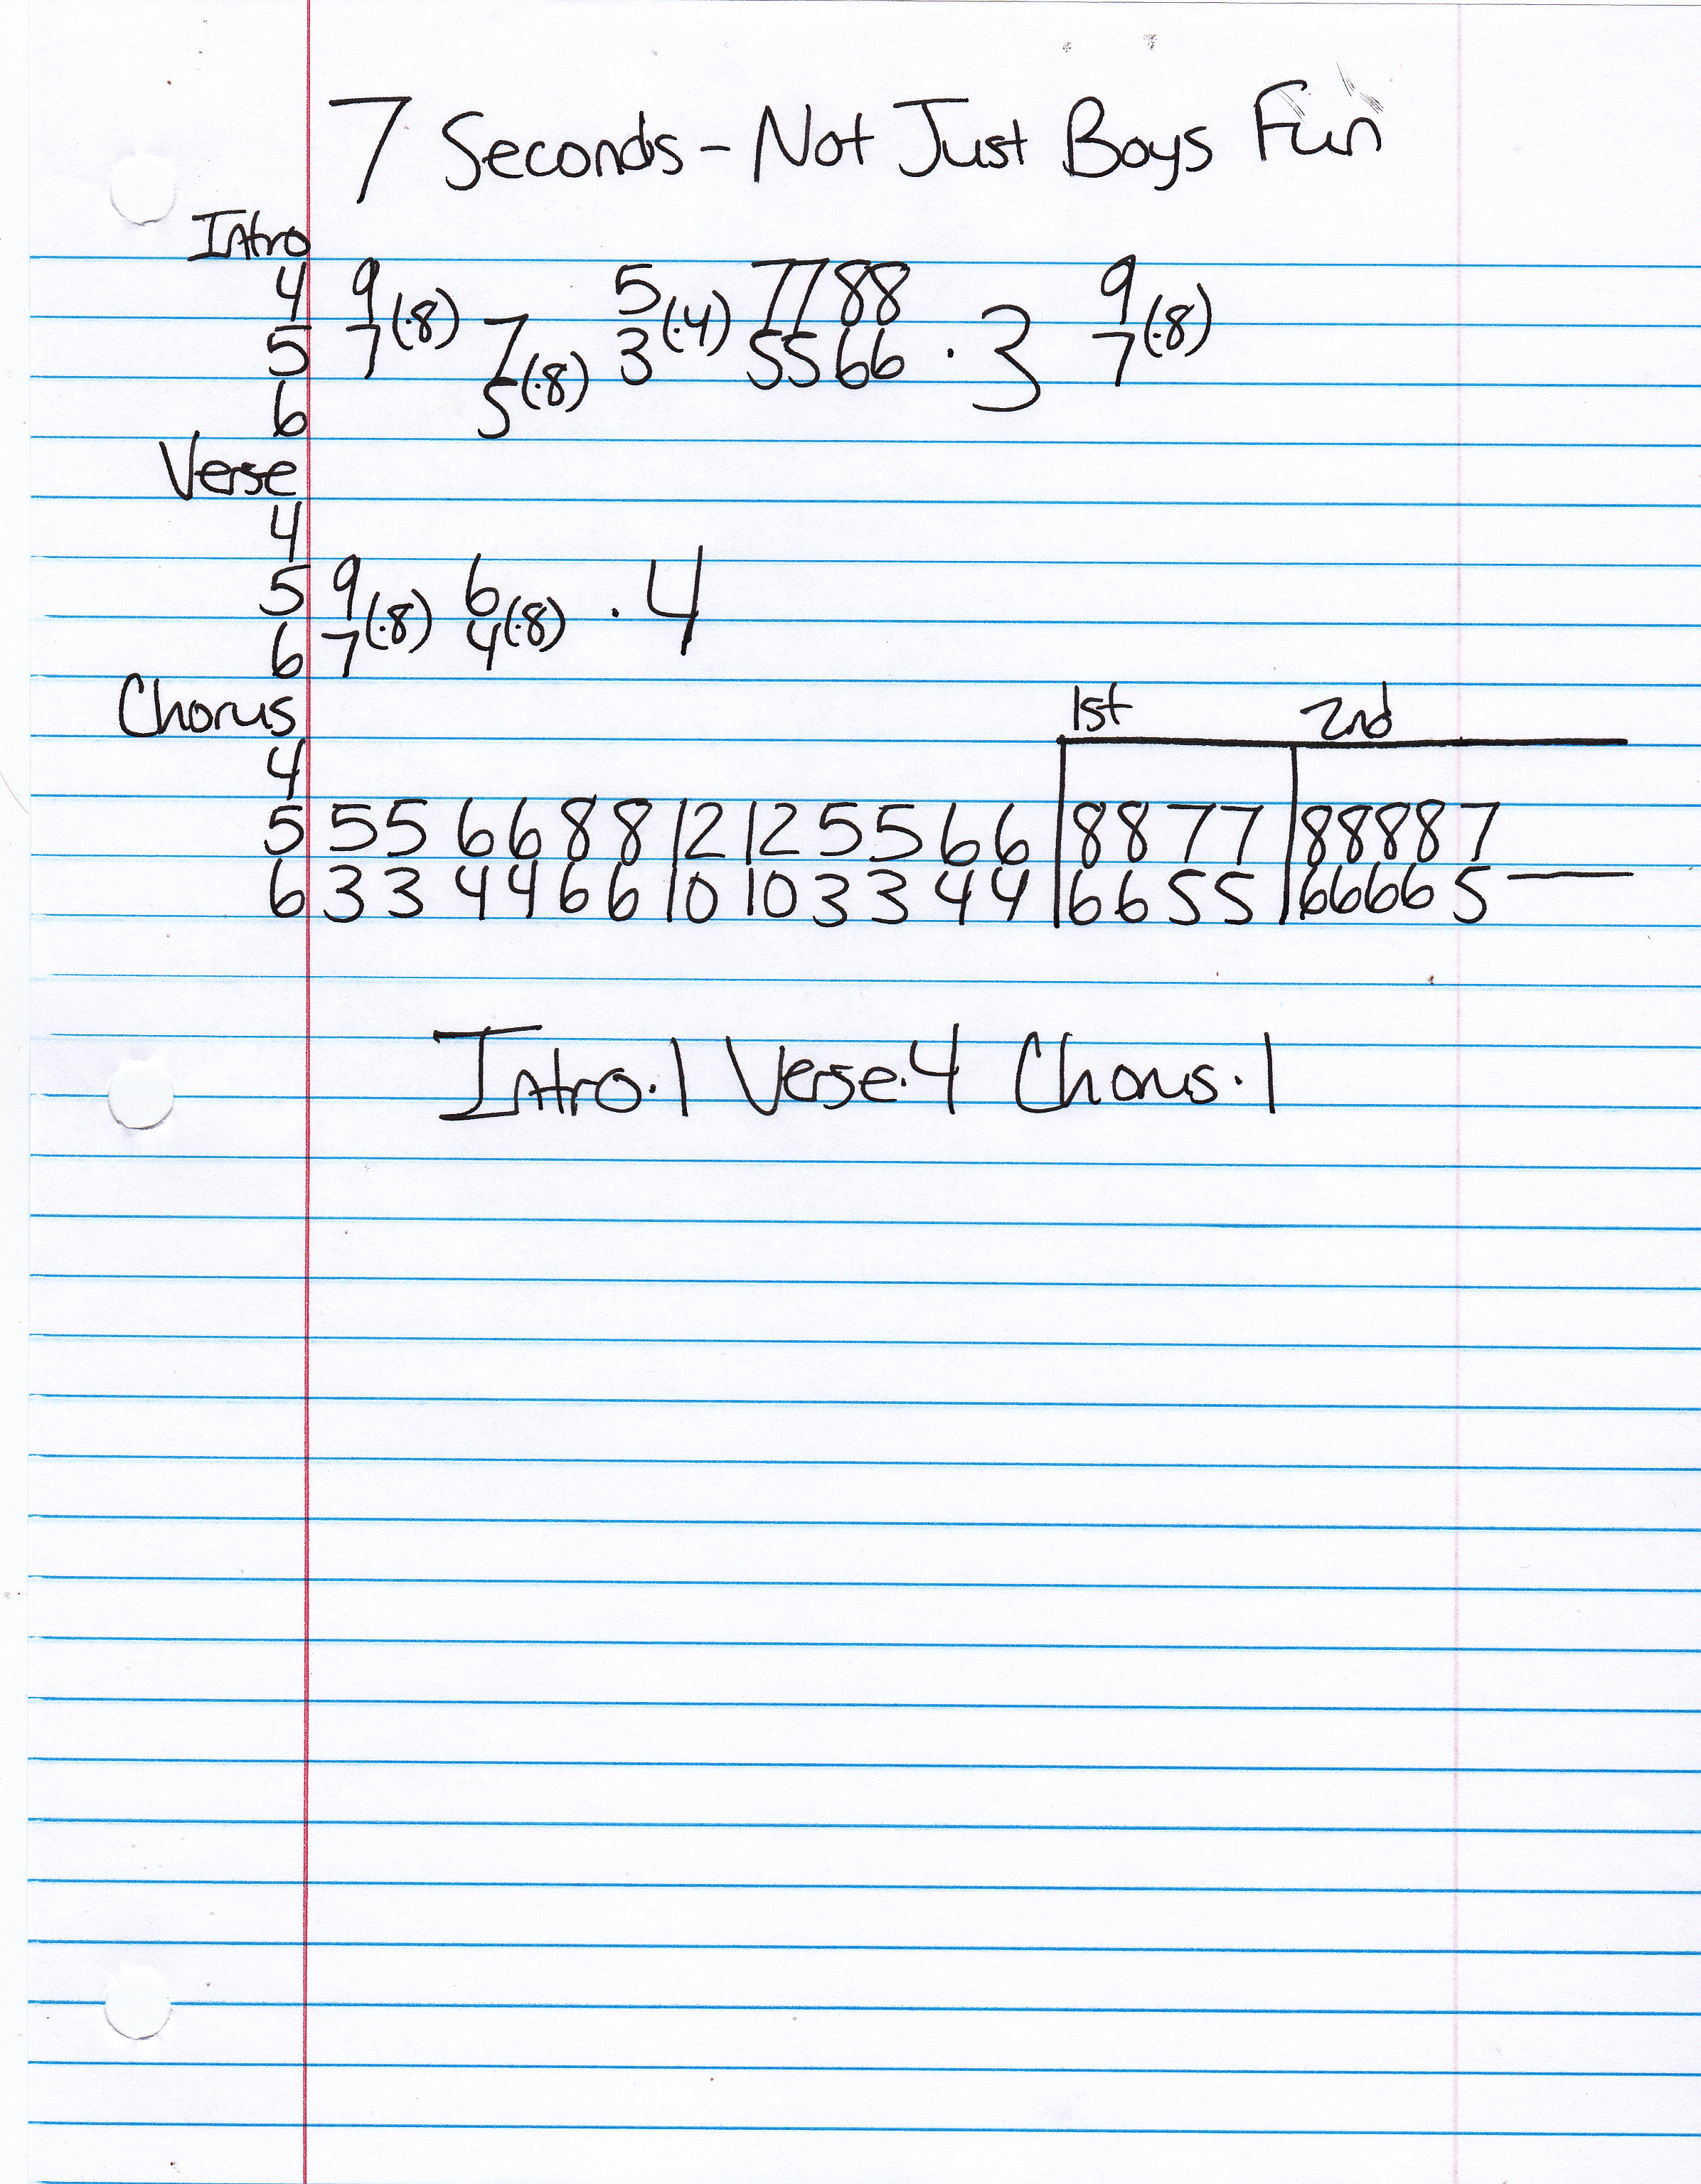 7 Seconds - Not Just Boys Fun
Intro
4 9 5 77 88 9
(·8) 7 (·4) (·8)
5 7 3 55 66 · 3 7
5 (·8)
6
Verse
4
5 9 6 · 4
(·8) (·8)
6 7 4
Chorus 1st 2nd
4
5 5 5 6 6 8 8 12 12 5 5 6 6 8 8 7 7 8 8 8 8 7
6 3 3 4 4 6 6 10 10 3 3 4 4 6 6 5 5 6 6 6 6 5 —
Intro·1 Verse·4 Chorus·1